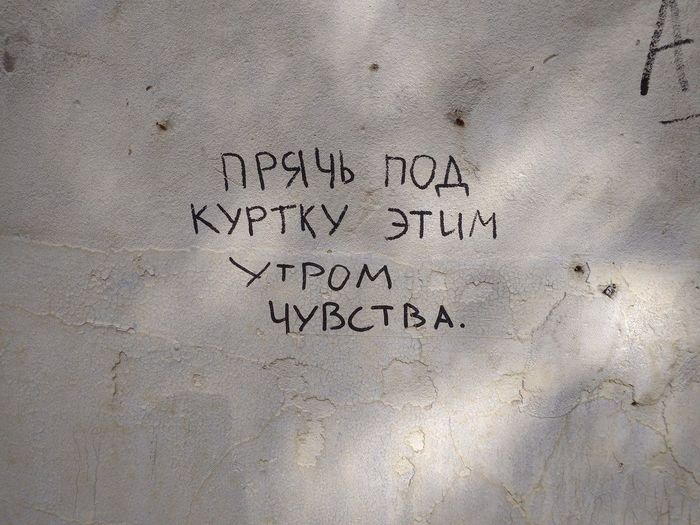 ПРЯЧЬ ПОД
КУРТКУ ЭТИМ
УТРОМ
ЧУВСТВА.
А